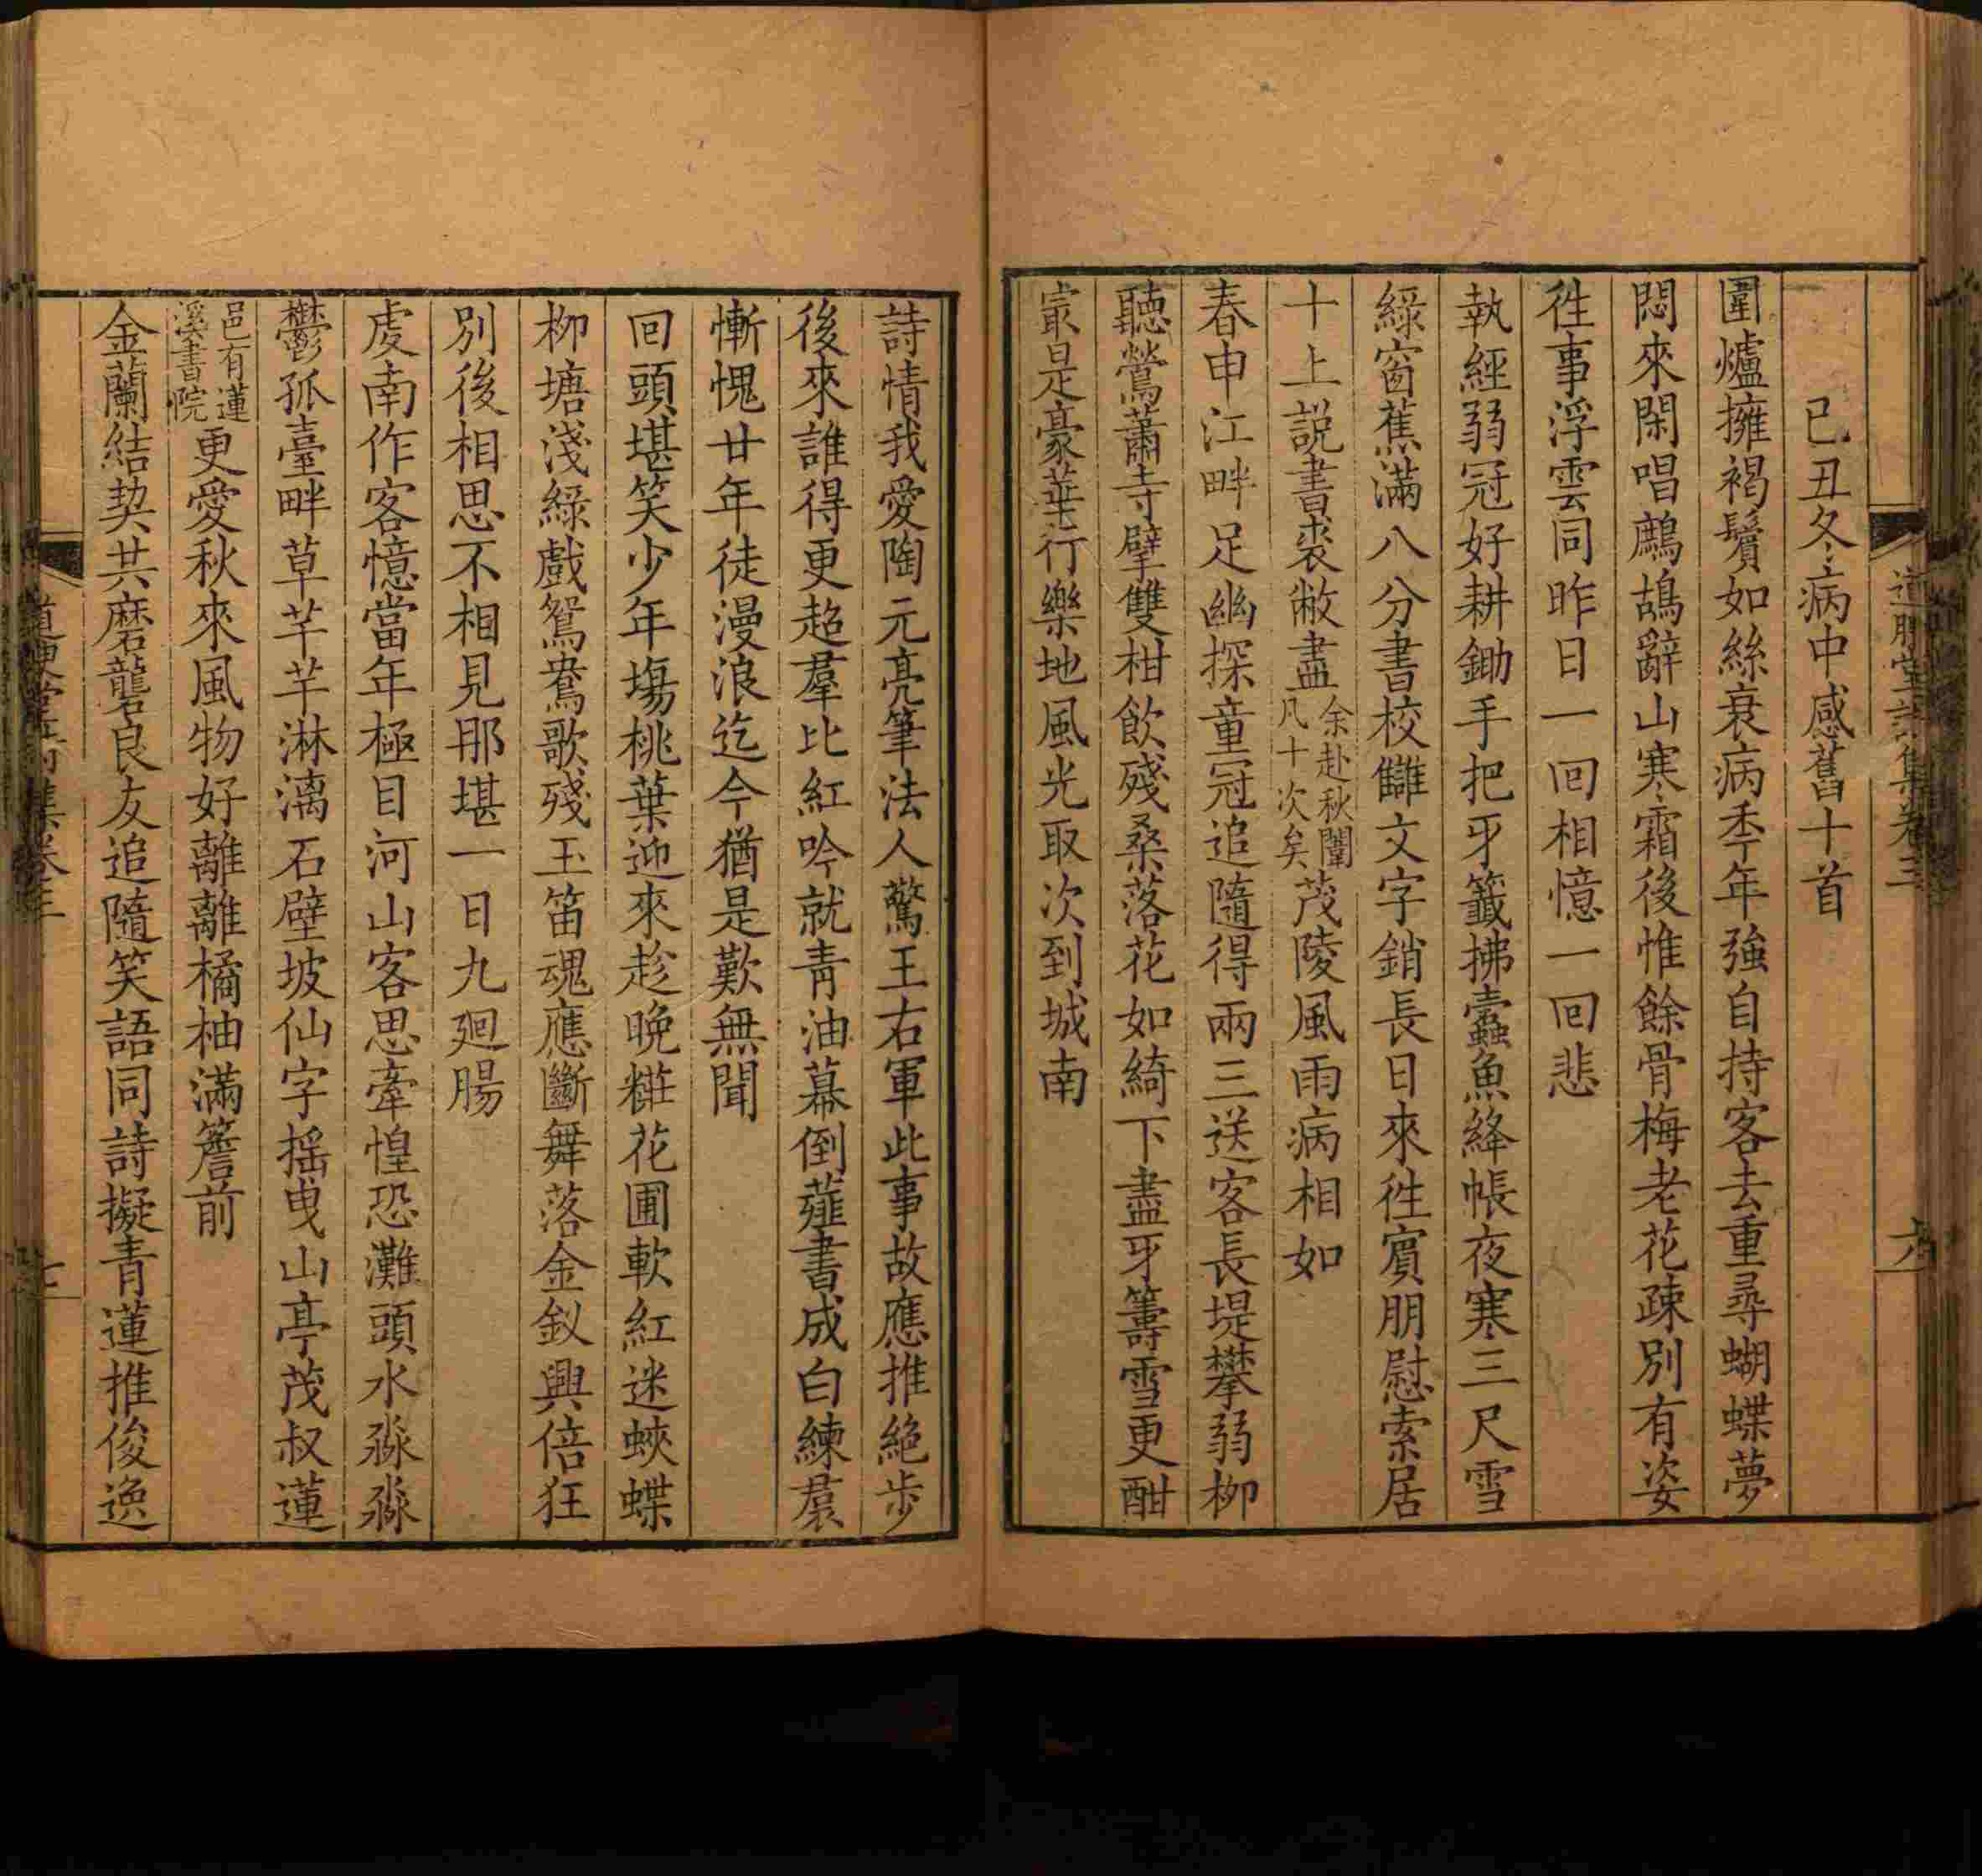 己丑冬病中感舊十首
圍爐擁褐鬢如絲衰病季年強自持客去重尋蝴蝶夢
悶來閑唱鷓鴣辭山寒霜後惟餘骨梅老花疎別有姿
徃事浮雲同昨日一回相憶一回悲
執經弱冠好耕鋤手把牙籤拂蠹魚絳帳夜寒三尺雪
綠窗蕉滿八分書校讎文字銷長日來徃賓朋慰索居
十上說書裘敝盡余赴秋闈凡十次矣茂陵風雨病相如
春申江畔足幽探童冠追隨得兩三送客長堤攀弱柳
聽鶯蕭寺擘雙柑飲殘桑落花如綺下盡牙籌雪更酣
㝡是豪華行樂地風光取次到城南
詩情我愛陶元亮筆法人驚王右軍此事故應推絕步
後來誰得更超羣比紅吟就青油幕倒薤書成白練裙
慚愧廿年徒漫浪迄今猶是歎無聞
回頭堪笑少年塲桃葉迎來趁晚糚花圃軟紅迷蛺蝶
柳塘淺綠戲鴛鴦歌殘玉笛魂應斷舞落金釵興倍狂
別後相思不相見那堪一日九廻腸
虔南作客憶當年極目河山客思牽惶恐灘頭水淼淼
鬱孤臺畔草芊芊淋漓石壁坡仙字搖曳山亭茂叔蓮
邑有蓮溪書院更愛秋來風物好離離橘柚滿簷前
金蘭結契共磨礱良友追隨笑語同詩擬青蓮推俊逸